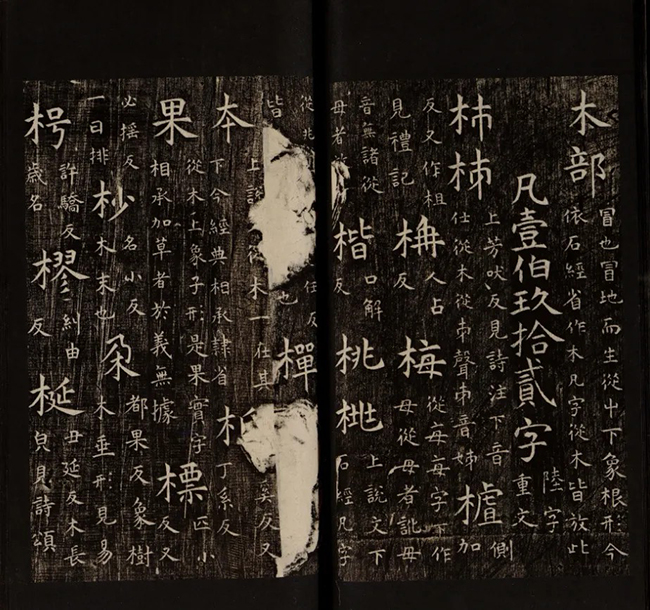 木部
冒也冒地而生從屮下象根形今
依石經省作木凡字從木皆放此
凡壹伯玖拾貳字
陸字
重文
上芳吠反見詩注下音側
仕從木從𠂔聲𠂔音姊
樝
側
加
反又作柤
見禮記
柟
人占
反
梅
從每每字下作
母從母者訛毋
音無諸從
毋者
楷
口解
反
桃
上說文下
石經凡字
從兆
皆
任反
也
樿
上說
從木一在其
下今經典相承隸省
本
丁系反
奚反又
果
從木上象子形是果實字
相承加草者於義無據
標
匹小
反又
必搖反
一曰排
杪
名小反
木末也
朶
都果反象樹
木垂形見易
枵
許驕反
歲名
樛
糾由
反
梴
丑延反木長
皃見詩頌